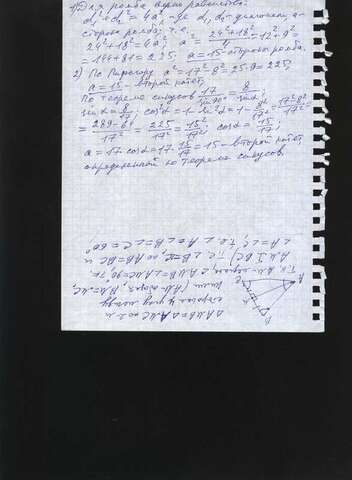 1) Для ромба верно равенство:
d₁² + d₂² = 4a², где d₁, d₂ - диагонали, a-
сторона ромба, т.е.
24² + 18² = 4a², a² = (24² + 18²)/4 = 12² + 9² =
= 144 + 81 = 225, a = 15 - сторона ромба.
2) По Пифагору a² = 17² - 8² = 25·9 = 225,
a = 15 - второй катет,
По теореме синусов 17/sin90° = 8/sinα,
sinα = 8/17, cos²α = 1 - sin²α = 1 - 8²/17² = (17² - 8²)/17² =
= (289 - 64)/17² = 225/17² = 15²/17², cosα = 15/17,
a = 17 cosα = 17·15/17 = 15 - второй катет,
определенный по теореме синусов.
ΔAMB = ΔAMC по 2-м
сторонам и углу между
ними (AM - общая, BM = MC,
∠AMB = ∠AMC = 90°, т.к.
AM ⊥ BC)